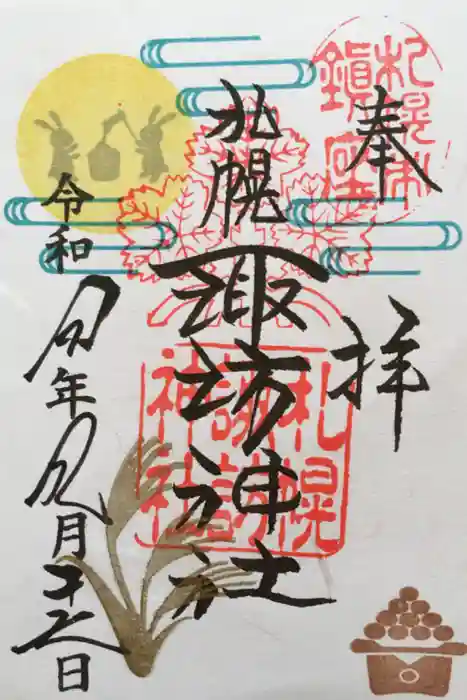 奉拝
札幌鎮座
札幌
諏訪神社
札幌
諏訪
神社
令和
年
月
日